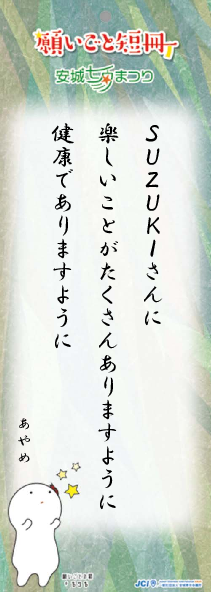 願いごと短冊
安城七夕まつり
SUZUKIさんに
楽しいことがたくさんありますように
健康でありますように
あやめ
JCI